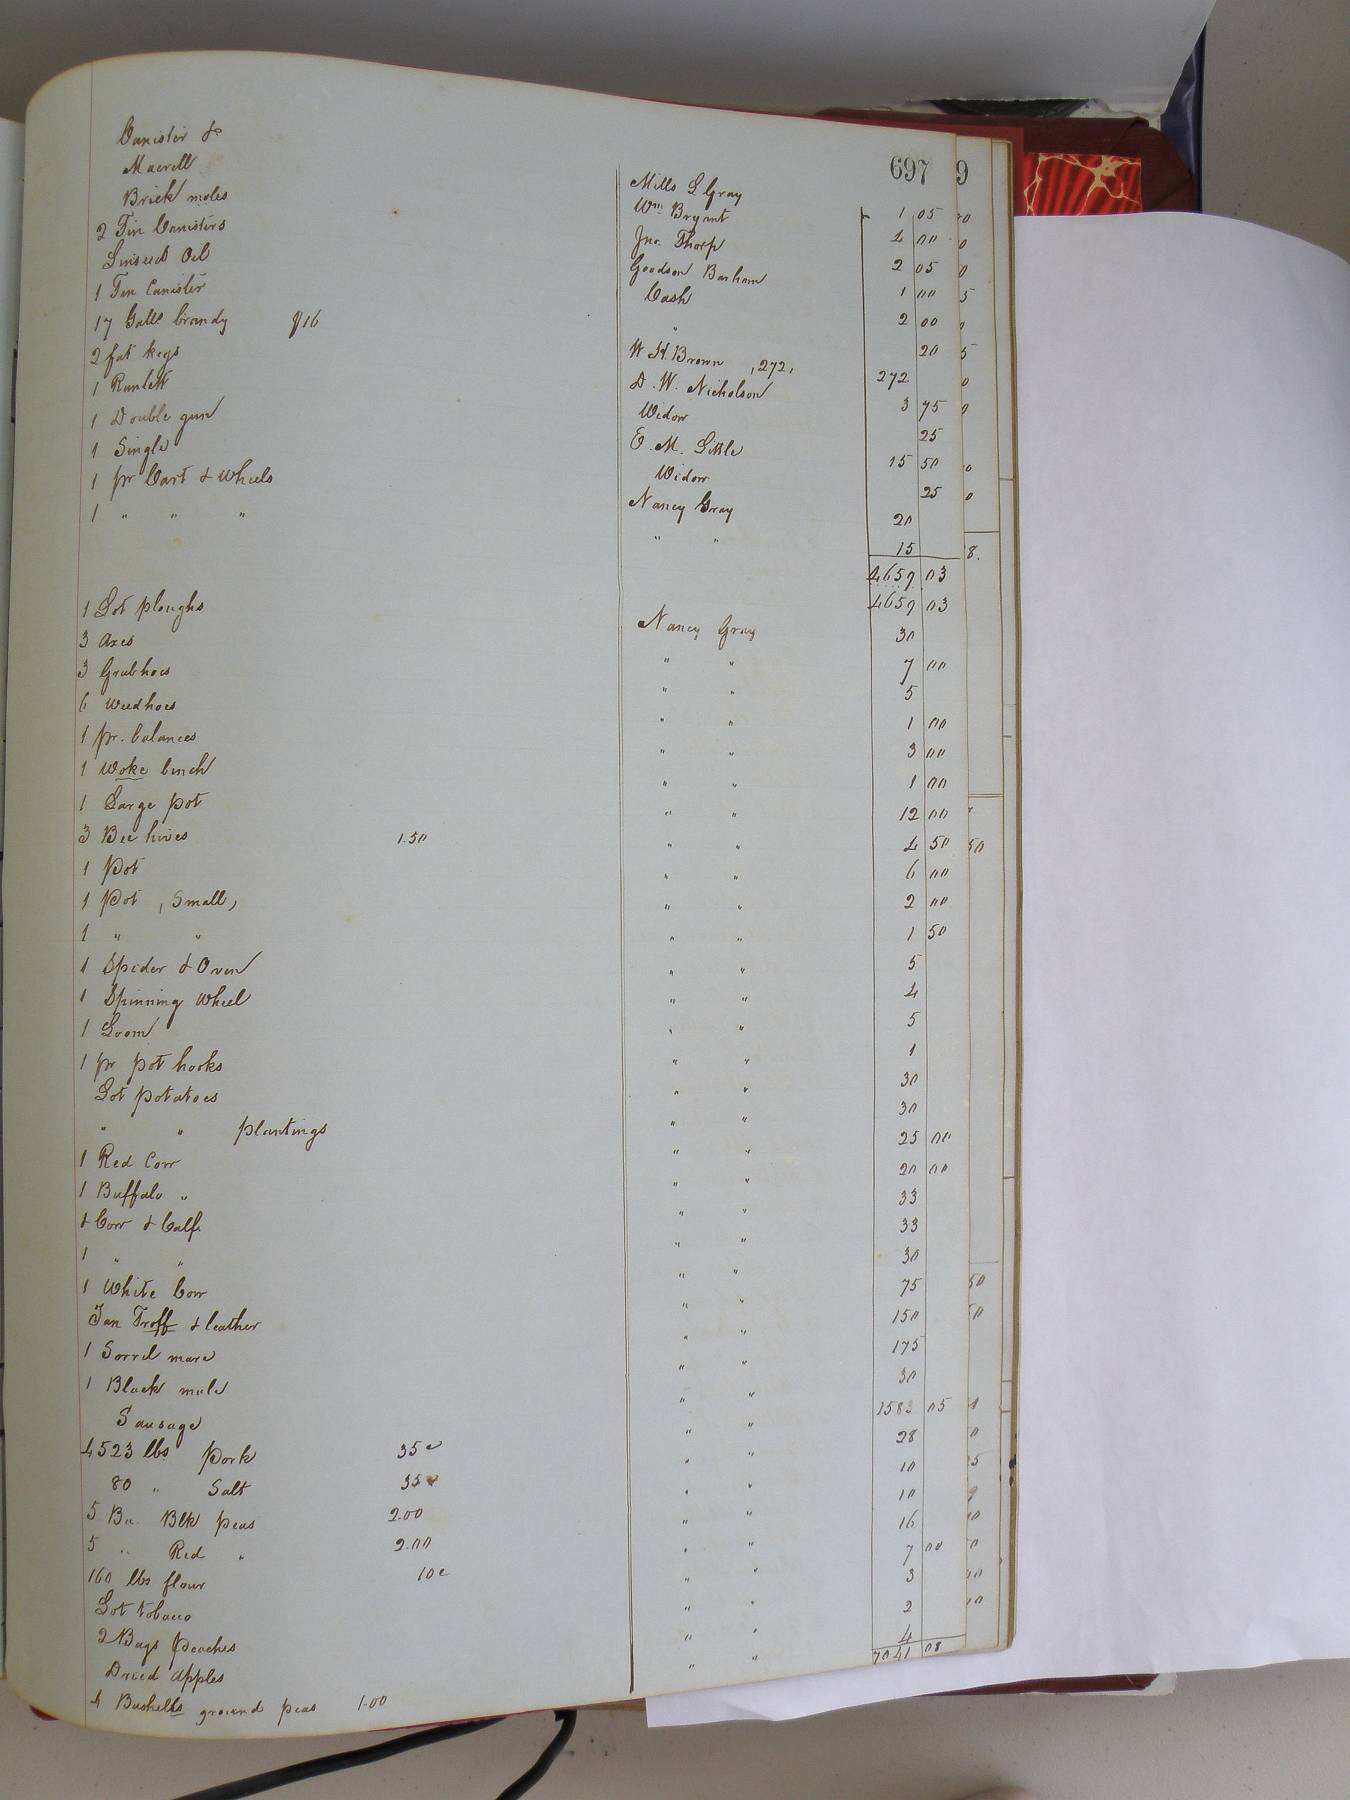 697 9
Canister & Mills L Gray 1 05
Macrill Wm Bryant 4 00
Brick moles Jno. Thorp 2 05
2 Tin Canisters Goodson Barham 1 00
Linseed Oil Cash 2 00
1 Tin Canister " 20
17 Galls brandy $16 W H. Brown ,272, 272
2 fat kegs D. W. Nicholson 3 75
1 Runlett Widow 25
1 Double gun E. M. Little 15 50
1 Single Widow 25
1 pr Cart & Wheels Nancy Gray 20
1 " " " " " 15
4659 03
4659 03
1 Lot ploughs Nancy Gray 30
3 Axes " " 7 00
3 Grubhoes " " 5
6 Weedhoes " " 1 00
1 pr. balances " " 3 00
1 Woke bench " " 1 00
1 Large pot " " 12 00
3 Bee hives 1.50 " " 4 50
1 Pot " " 6 00
1 Pot (Small) " " 2 00
1 " " " " 1 50
1 Spider & Oven " " 5
1 Spinning Wheel " " 4
1 Loom " " 5
1 pr pot hooks " " 1
Lot potatoes " " 30
" " plantings " " 30
1 Red Cow " " 25 00
1 Buffalo " " " 20 00
1 Cow & Calf " " 33
1 " " " " 33
1 White Cow " " 30
Tan Troff & leather " " 75
1 Sorrel mare " " 150
1 Black mule " " 175
Sausage " " 30
4523 lbs Pork 35c " " 1583 05
80 " Salt 35c " " 28
5 Bu. Blk peas 2.00 " " 10
5 " Red " 2.00 " " 10
160 lbs flour 10c " " 16
Lot tobacco " " 7 00
2 Bags peaches " " 3
Dried Apples " " 2
4 Bushells ground peas 1.00 " " 4
7041 08